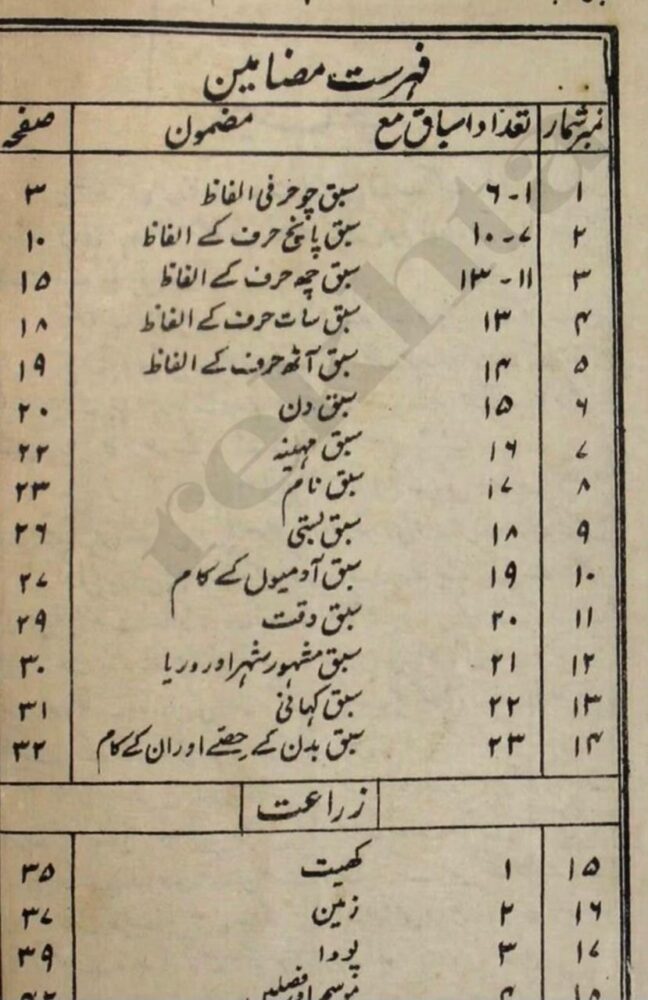 فہرست مضامین
نمبر شمار تعداد اسباق مع مضمون صفحہ
۱ ۱-۶ سبق چو حرفی الفاظ ۳
۲ ۷-۱۰ سبق پانچ حرف کے الفاظ ۱۰
۳ ۱۱-۱۳ سبق چھ حرف کے الفاظ ۱۵
۴ ۱۳ سبق سات حرف کے الفاظ ۱۸
۵ ۱۴ سبق آٹھ حرف کے الفاظ ۱۹
۶ ۱۵ سبق دن ۲۰
۷ ۱۶ سبق مہینہ ۲۲
۸ ۱۷ سبق نام ۲۳
۹ ۱۸ سبق بستی ۲۶
۱۰ ۱۹ سبق آدمیوں کے کام ۲۷
۱۱ ۲۰ سبق وقت ۲۹
۱۲ ۲۱ سبق مشہور شہر اور دریا ۳۰
۱۳ ۲۲ سبق کہانی ۳۱
۱۴ ۲۳ سبق بدن کے حصّے اور ان کے کام ۳۲
زراعت
۱۵ ۱ کھیت ۳۵
۱۶ ۲ زمین ۳۷
۱۷ ۳ پودا ۳۹
rekhta